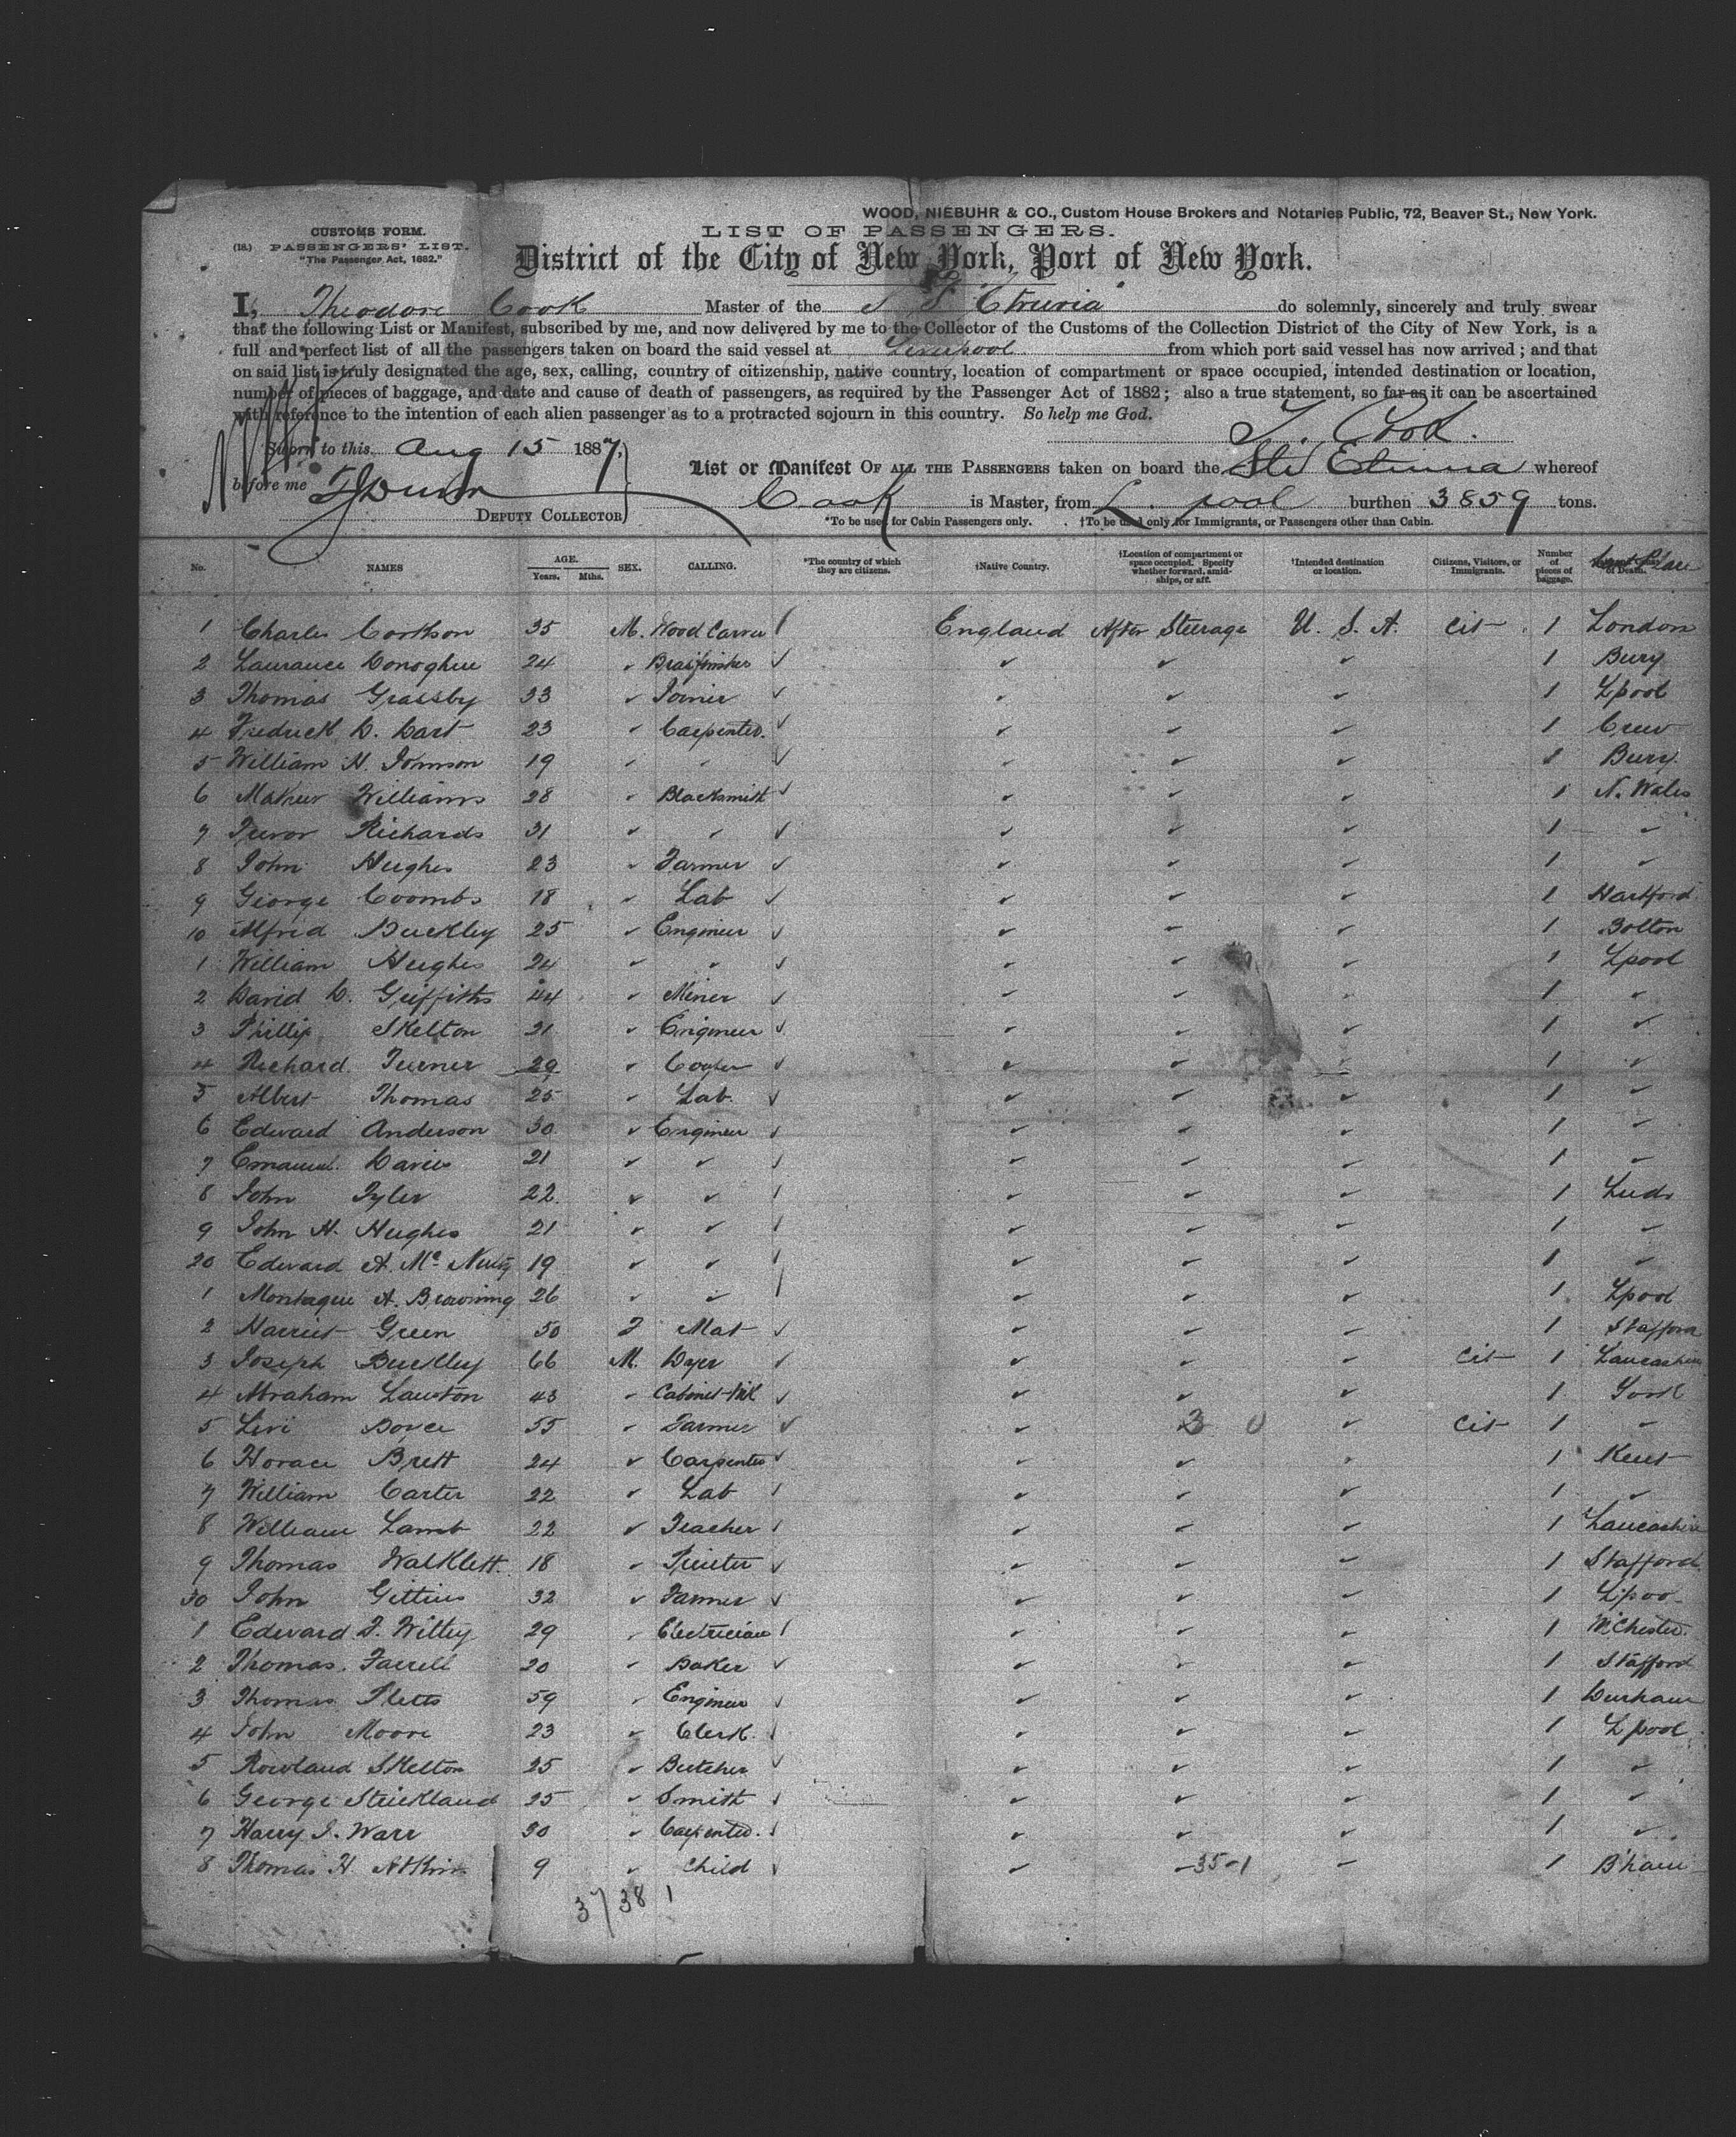 WOOD, NIEBUHR & CO., Custom House Brokers and Notaries Public, 72, Beaver St., New York.
CUSTOMS FORM.
(18.) PASSENGERS' LIST.
"The Passenger Act, 1882."
LIST OF PASSENGERS.
District of the City of New York, Port of New York.
I, Theodore Cook Master of the S S Etruria do solemnly, sincerely and truly swear
that the following List or Manifest, subscribed by me, and now delivered by me to the Collector of the Customs of the Collection District of the City of New York, is a
full and perfect list of all the passengers taken on board the said vessel at Liverpool from which port said vessel has now arrived; and that
on said list is truly designated the age, sex, calling, country of citizenship, native country, location of compartment or space occupied, intended destination or location,
number of pieces of baggage, and date and cause of death of passengers, as required by the Passenger Act of 1882; also a true statement, so far as it can be ascertained
with reference to the intention of each alien passenger as to a protracted sojourn in this country. So help me God.
T. Cook.
Sworn to this Aug 15 1887,
before me
DEPUTY COLLECTOR
List or Manifest OF ALL THE PASSENGERS taken on board the Str Etruria whereof
Cook is Master, from L. pool burthen 3859 tons.
*To be used for Cabin Passengers only. †To be used only for Immigrants, or Passengers other than Cabin.
No. NAMES AGE. Years. Mths. SEX. CALLING. *The country of which they are citizens. †Native Country. †Location of compartment or space occupied. Specify whether forward, amidships, or aft. †Intended destination or location. Citizens, Visitors, or Immigrants. Number of pieces of baggage. of Death.
1 Charles 35 M. Wood Carver / England After Steerage U. S. A. Cit 1 London
2 Laurance Donoghue 24 ✓ Brassfinisher ✓ ✓ ✓ ✓ 1 Bury
3 Thomas Grassby 33 ✓ Joiner ✓ ✓ ✓ ✓ 1 Lpool
4 Fredrick D. Dart 23 ✓ Carpenter. ✓ ✓ ✓ ✓ 1 Crew
5 William H. 19 ✓ ✓ ✓ ✓ ✓ ✓ 1 Bury.
6 Mathew Williams 28 ✓ Blacksmith ✓ ✓ ✓ ✓ 1 N. Wales
7 Trevor Richards 31 ✓ ✓ ✓ ✓ ✓ ✓ 1 ✓
8 John Hughes 23 ✓ Farmer ✓ ✓ ✓ ✓ 1 ✓
9 George Coombs 18 ✓ Lab ✓ ✓ ✓ ✓ 1 Hartford
10 Alfrid Buckley 25 ✓ Engineer ✓ ✓ ✓ ✓ 1 Bolton
1 William Hughes 24 ✓ ✓ ✓ ✓ ✓ ✓ 1 Lpool
2 David D. Griffiths 44 ✓ Miner ✓ ✓ ✓ ✓ 1 ✓
3 Phillip Skelton 21 ✓ Engineer ✓ ✓ ✓ ✓ 1 ✓
4 Richard Turner 29 ✓ ✓ ✓ ✓ ✓ 1 ✓
5 Albert Thomas 25 ✓ Lab. ✓ ✓ ✓ ✓ 1 ✓
6 Edward Anderson 30 ✓ Engineer ✓ ✓ ✓ ✓ 1 ✓
7 Emanuel. Davies 21 ✓ ✓ / ✓ ✓ ✓ 1 ✓
8 John Tyler 22. ✓ ✓ / ✓ ✓ ✓ 1 Leeds
9 John H. Hughes 21 ✓ ✓ / ✓ ✓ ✓ 1 ✓
20 Edward A. Mc Nulty 19 ✓ ✓ / ✓ ✓ ✓ 1 ✓
1 Montague A. Browning 26 ✓ ✓ / ✓ ✓ ✓ 1 Lpool
2 Harriet Green 50 F Mat ✓ ✓ ✓ ✓ 1 Stafford
3 Joseph Buckley 66 M. Dyer ✓ ✓ ✓ ✓ Cit 1 Lancashire
4 Abraham Lawton 43 ✓ Cabinet Mk ✓ ✓ ✓ ✓ 1 York
5 Levi Boyce 55 ✓ Farmer ✓ ✓ ✓ Cit 1 ✓
6 Horace Brett 24 ✓ Carpenter ✓ ✓ ✓ ✓ 1 Kent
7 William Carter 22 ✓ Lab / ✓ ✓ ✓ 1 ✓
8 William Lamb 22 ✓ Teacher / ✓ ✓ ✓ 1 Lancashire
9 Thomas Walklett. 18 ✓ ✓ ✓ ✓ ✓ 1 Stafford
30 John Gittins 32 ✓ Farmer ✓ ✓ ✓ ✓ 1 Lpoo
1 Edward F. Witty 29 ✓ Electrician / ✓ ✓ ✓ 1 M'Chester.
2 Thomas. Farrell 20 ✓ Baker ✓ ✓ ✓ ✓ 1 Stafford
3 Thomas Pletts 59 ✓ Engineer ✓ ✓ ✓ ✓ 1 Durham
4 John Moore 23 ✓ Clerk. ✓ ✓ ✓ ✓ 1 L pool
5 Rowland Skelton 25 ✓ Butcher ✓ ✓ ✓ ✓ 1 ✓
6 George Strickland 25 ✓ Smith ✓ ✓ ✓ ✓ 1 ✓
7 Harry J. Warr 30 ✓ Carpenter. ✓ ✓ ✓ ✓ 1 ✓
8 Thomas H. Atkins 9 ✓ Child ✓ ✓ 35-1 ✓ 1 B'ham
37 38 1